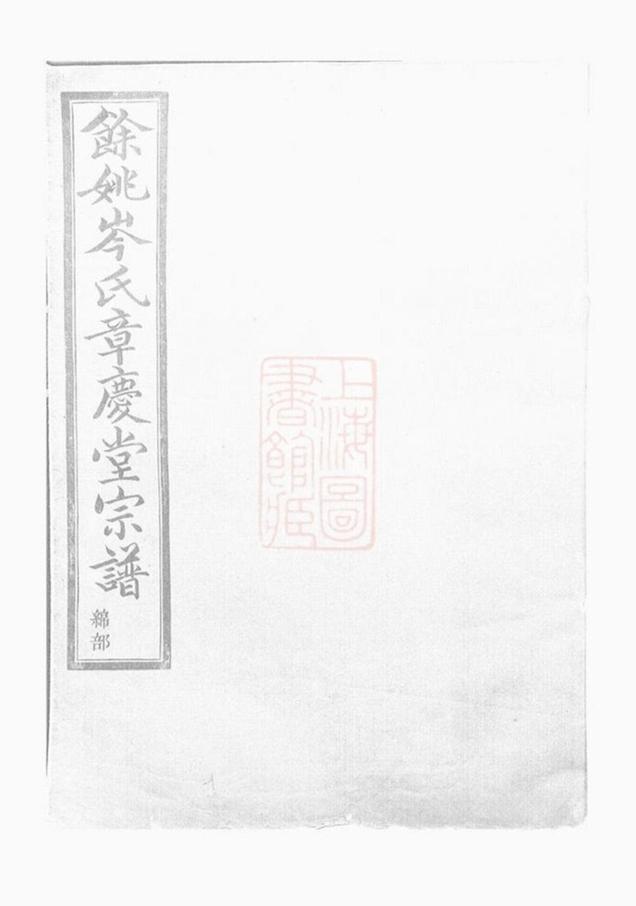 餘姚岑氏章慶堂宗譜
綿部
上海圖
書館臧